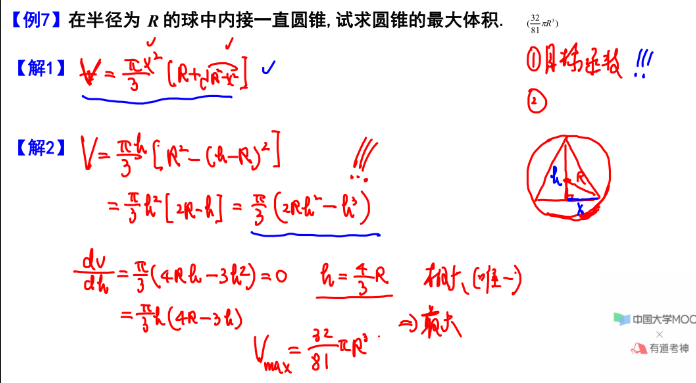 【例7】在半径为 R 的球中内接一直圆锥, 试求圆锥的最大体积. (32/81 πR³)
【解1】 V = π/3 x² [R+√(R²-x²)] ✓
① 目标函数 !!!
②
【解2】 V = πh/3 [R²-(h-R)²] !!!
= π/3 h² [2R-h] = π/3 (2Rh²-h³)
h R
x
dv/dh = π/3 (4Rh-3h²) = 0 h = 4/3 R 极大 (唯一)
= π/3 h(4R-3h) ⇒ 最大
Vmax = 32/81 πR³
中国大学MOO
×
有道考神